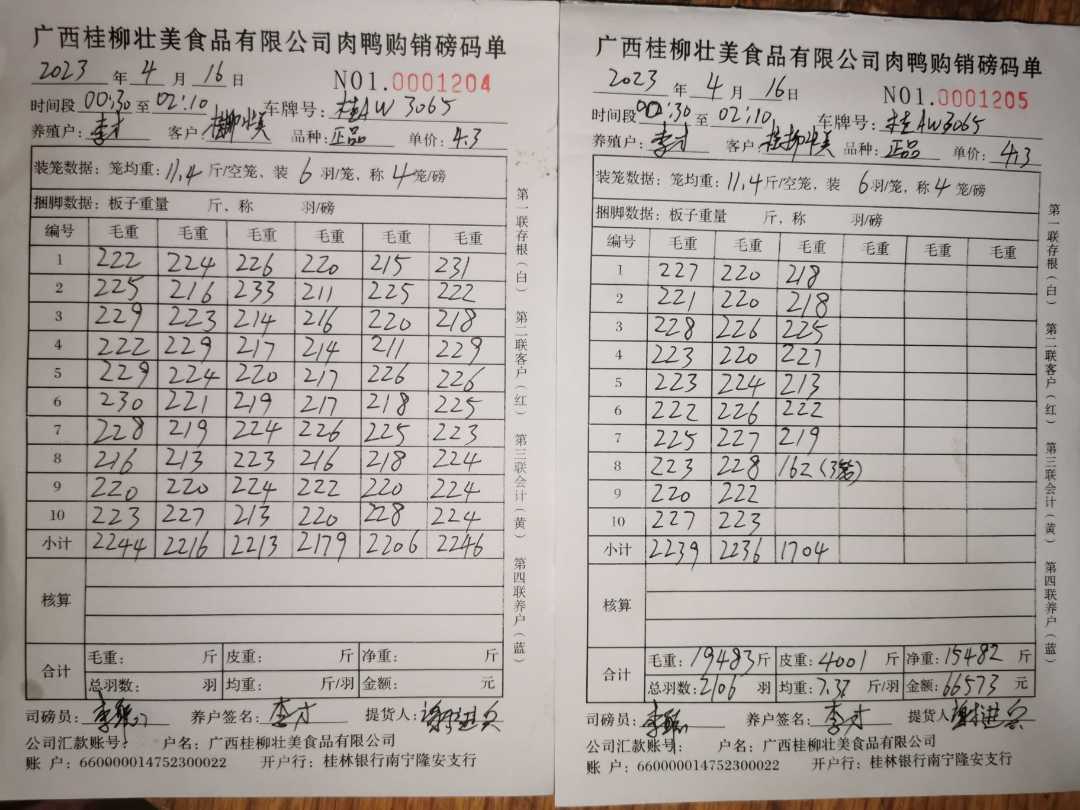 广西桂柳壮美食品有限公司肉鸭购销磅码单
2023 年 4 月 16 日 NO1.0001204
时间段 00:30 至 02:10 车牌号: 桂AW3065
养殖户: 李才 客户 桂柳壮美 品种: 正品 单价: 4.3
装笼数据: 笼均重: 11.4 斤/空笼、装 6 羽/笼, 称 4 笼/磅
捆脚数据: 板子重量 斤, 称 羽/磅
编号 毛重 毛重 毛重 毛重 毛重 毛重
1 222 224 226 220 215 231
2 225 216 233 211 225 222
3 229 223 214 216 220 218
4 222 229 217 214 211 229
5 229 224 220 217 226 226
6 230 221 219 217 218 225
7 228 219 224 226 225 223
8 216 213 223 216 218 224
9 220 220 224 222 220 224
10 223 227 213 220 228 224
小计 2244 2216 2213 2179 2206 2246
核算
合计 毛重: 斤 皮重: 斤 净重: 斤
总羽数: 羽 均重: 斤/羽 金额: 元
司磅员: 养户签名: 李才 提货人:
公司汇款账号: 户名: 广西桂柳壮美食品有限公司
账 户: 660000014752300022 开户行: 桂林银行南宁隆安支行
第一联存根(白) 第二联客户(红) 第三联会计(黄) 第四联养户(蓝)
广西桂柳壮美食品有限公司肉鸭购销磅码单
2023 年 4 月 16 日 NO1.0001205
时间段 00:30 至 02:10 车牌号: 桂AW3065
养殖户: 李才 客户: 桂柳壮美 品种: 正品 单价: 4.3
装笼数据: 笼均重: 11.4 斤/空笼、装 6 羽/笼, 称 4 笼/磅
捆脚数据: 板子重量 斤, 称 羽/磅
编号 毛重 毛重 毛重 毛重 毛重 毛重
1 227 220 218
2 221 220 218
3 228 226 225
4 223 220 227
5 223 224 213
6 222 226 222
7 225 227 219
8 223 228 162 (3笼)
9 220 222
10 227 223
小计 2239 2236 1704
核算
合计 毛重: 19483 斤 皮重: 4001 斤 净重: 15482 斤
总羽数: 2106 羽 均重: 7.37 斤/羽 金额: 66573 元
司磅员: 养户签名: 李才 提货人:
公司汇款账号: 户名: 广西桂柳壮美食品有限公司
账 户: 660000014752300022 开户行: 桂林银行南宁隆安支行
第一联存根(白) 第二联客户(红) 第三联会计(黄) 第四联养户(蓝)